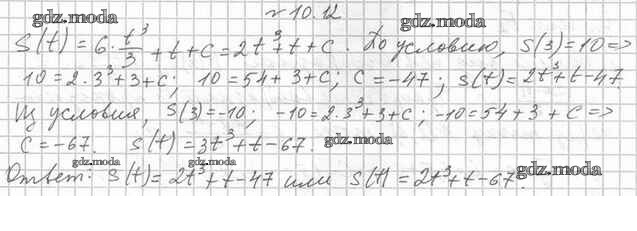 gdz.moda № 10.12 gdz.moda
S(t) = 6·t³/3 + t + C = 2t³ + t + C. По условию, S(3) = 10 =>
10 = 2·3³ + 3 + C; 10 = 54 + 3 + C; C = -47; S(t) = 2t³ + t - 47.
Из условия, S(3) = -10; -10 = 2·3³ + 3 + C; -10 = 54 + 3 + C =>
C = -67. S(t) = 3t³ + t - 67. gdz.moda
gdz.moda gdz.moda
Ответ: S(t) = 2t³ + t - 47 или S(t) = 2t³ + t - 67. gdz.moda